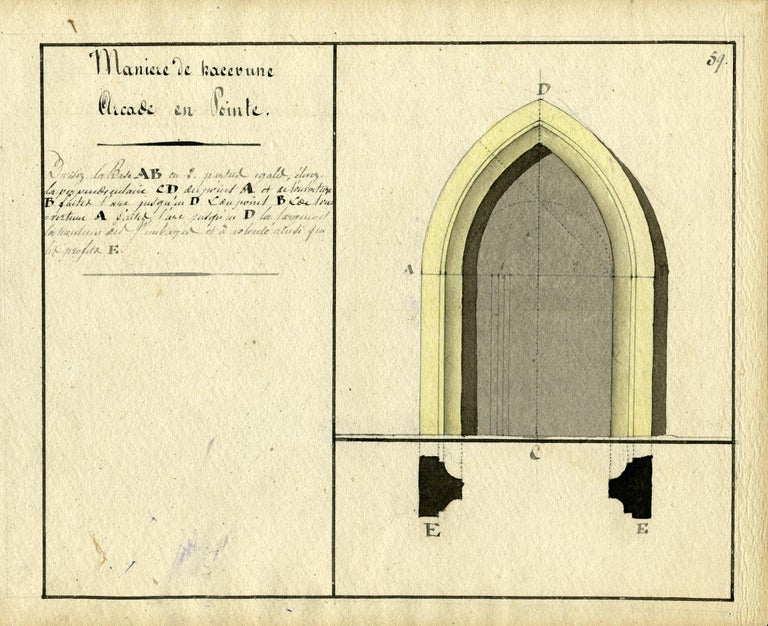 Maniere de tracer une
Arcade en Pointe.
Divisez la Base AB en 2. parties egales, élevez
la perpendiculaire CD du point A et de l'ouverture
B faites l'arc jusqu'en D & du point B & de l'ou
verture A faites l'arc jusqu'en D la
la hauteur des et à volonté ainsi que
les profils E.
59.
D
A
B
C
E
E